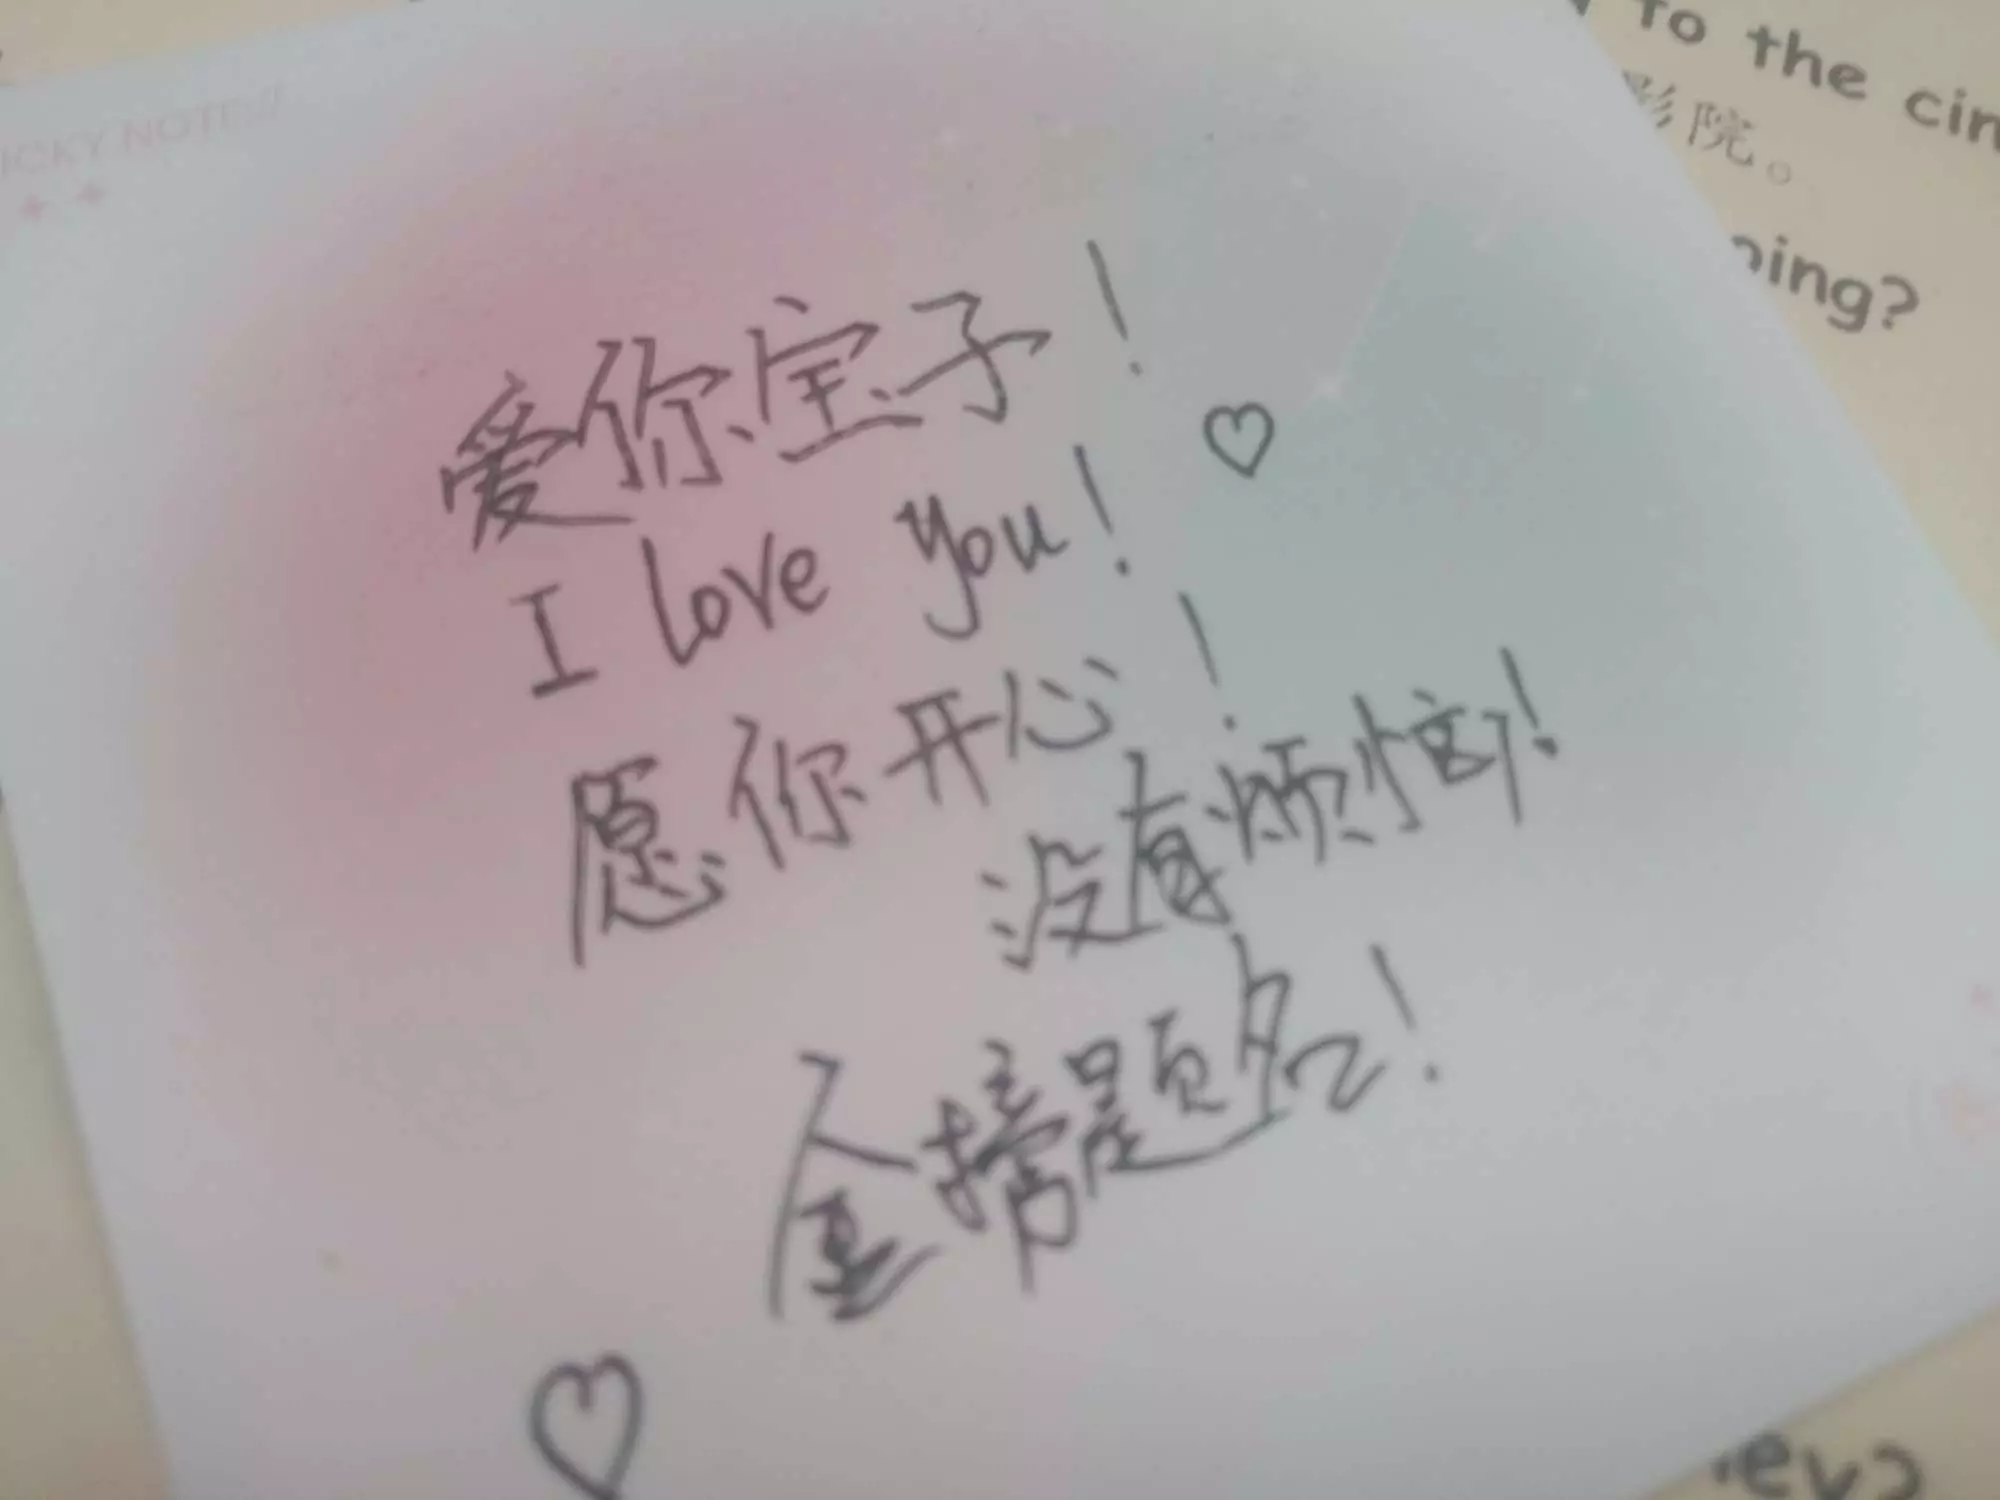 ICKY NOTE//
爱你宝子！
I love you！
愿你开心！
没有烦恼！
金榜题名！
to the cin
影院。
ning?